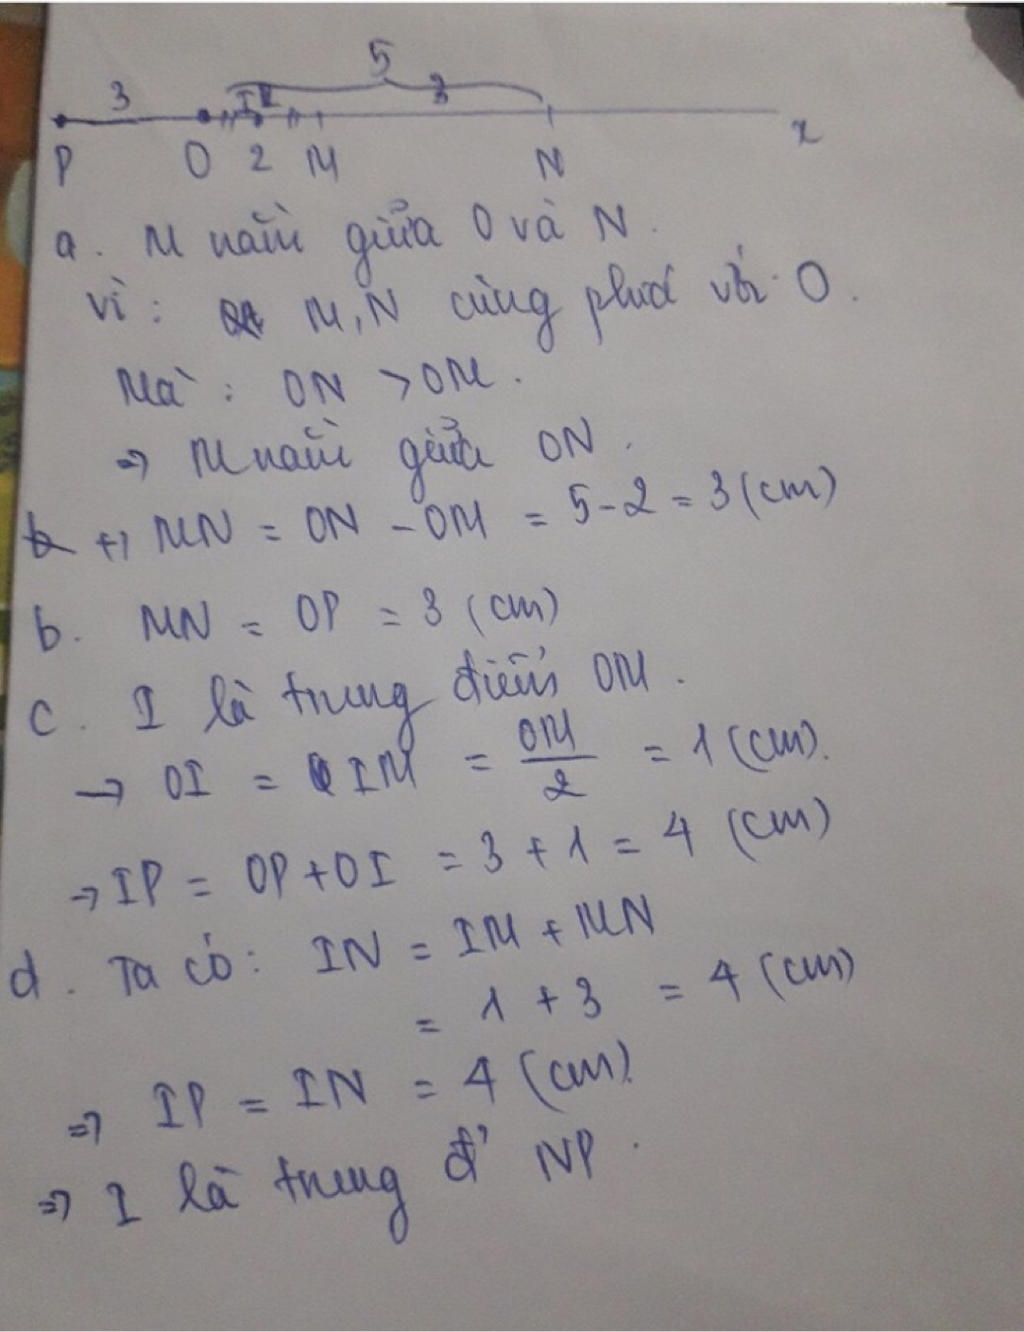 5
3 I 3
P O 2 M N x
a. M nằm giữa O và N.
vì: M, N cùng phía với O.
Mà: ON > OM.
=> M nằm giữa ON.
+) MN = ON - OM = 5 - 2 = 3 (cm)
b. MN = OP = 3 (cm)
c. I là trung điểm OM.
→ OI = IM = OM/2 = 1 (cm).
→ IP = OP + OI = 3 + 1 = 4 (cm)
d. Ta có: IN = IM + MN
= 1 + 3 = 4 (cm)
=> IP = IN = 4 (cm).
=> I là trung đ' NP.